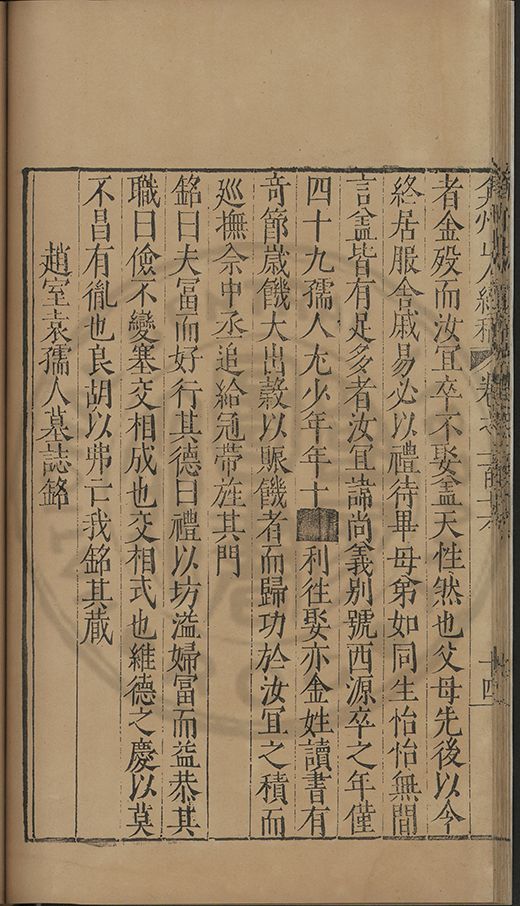 弇州山人續稿 卷之一百十六 十四
者金歿而汝宜卒不娶蓋天性然也父母先後以令
終居服舍戚易必以禮待異母弟如同生怡怡無間
言蓋皆有足多者汝宜諱尚義別號西源卒之年僅
四十九孺人尤少年年十利往娶亦金姓讀書有
奇節歲饑大出穀以賑饑者而歸功於汝宜之積而
巡撫佘中丞追給冠帶旌其門
銘曰夫富而好行其德曰禮以坊溢婦富而益恭其
職曰儉不變塞交相成也交相式也維德之慶以莫
不昌有胤也良胡以弗亡我銘其藏
趙室袁孺人墓誌銘